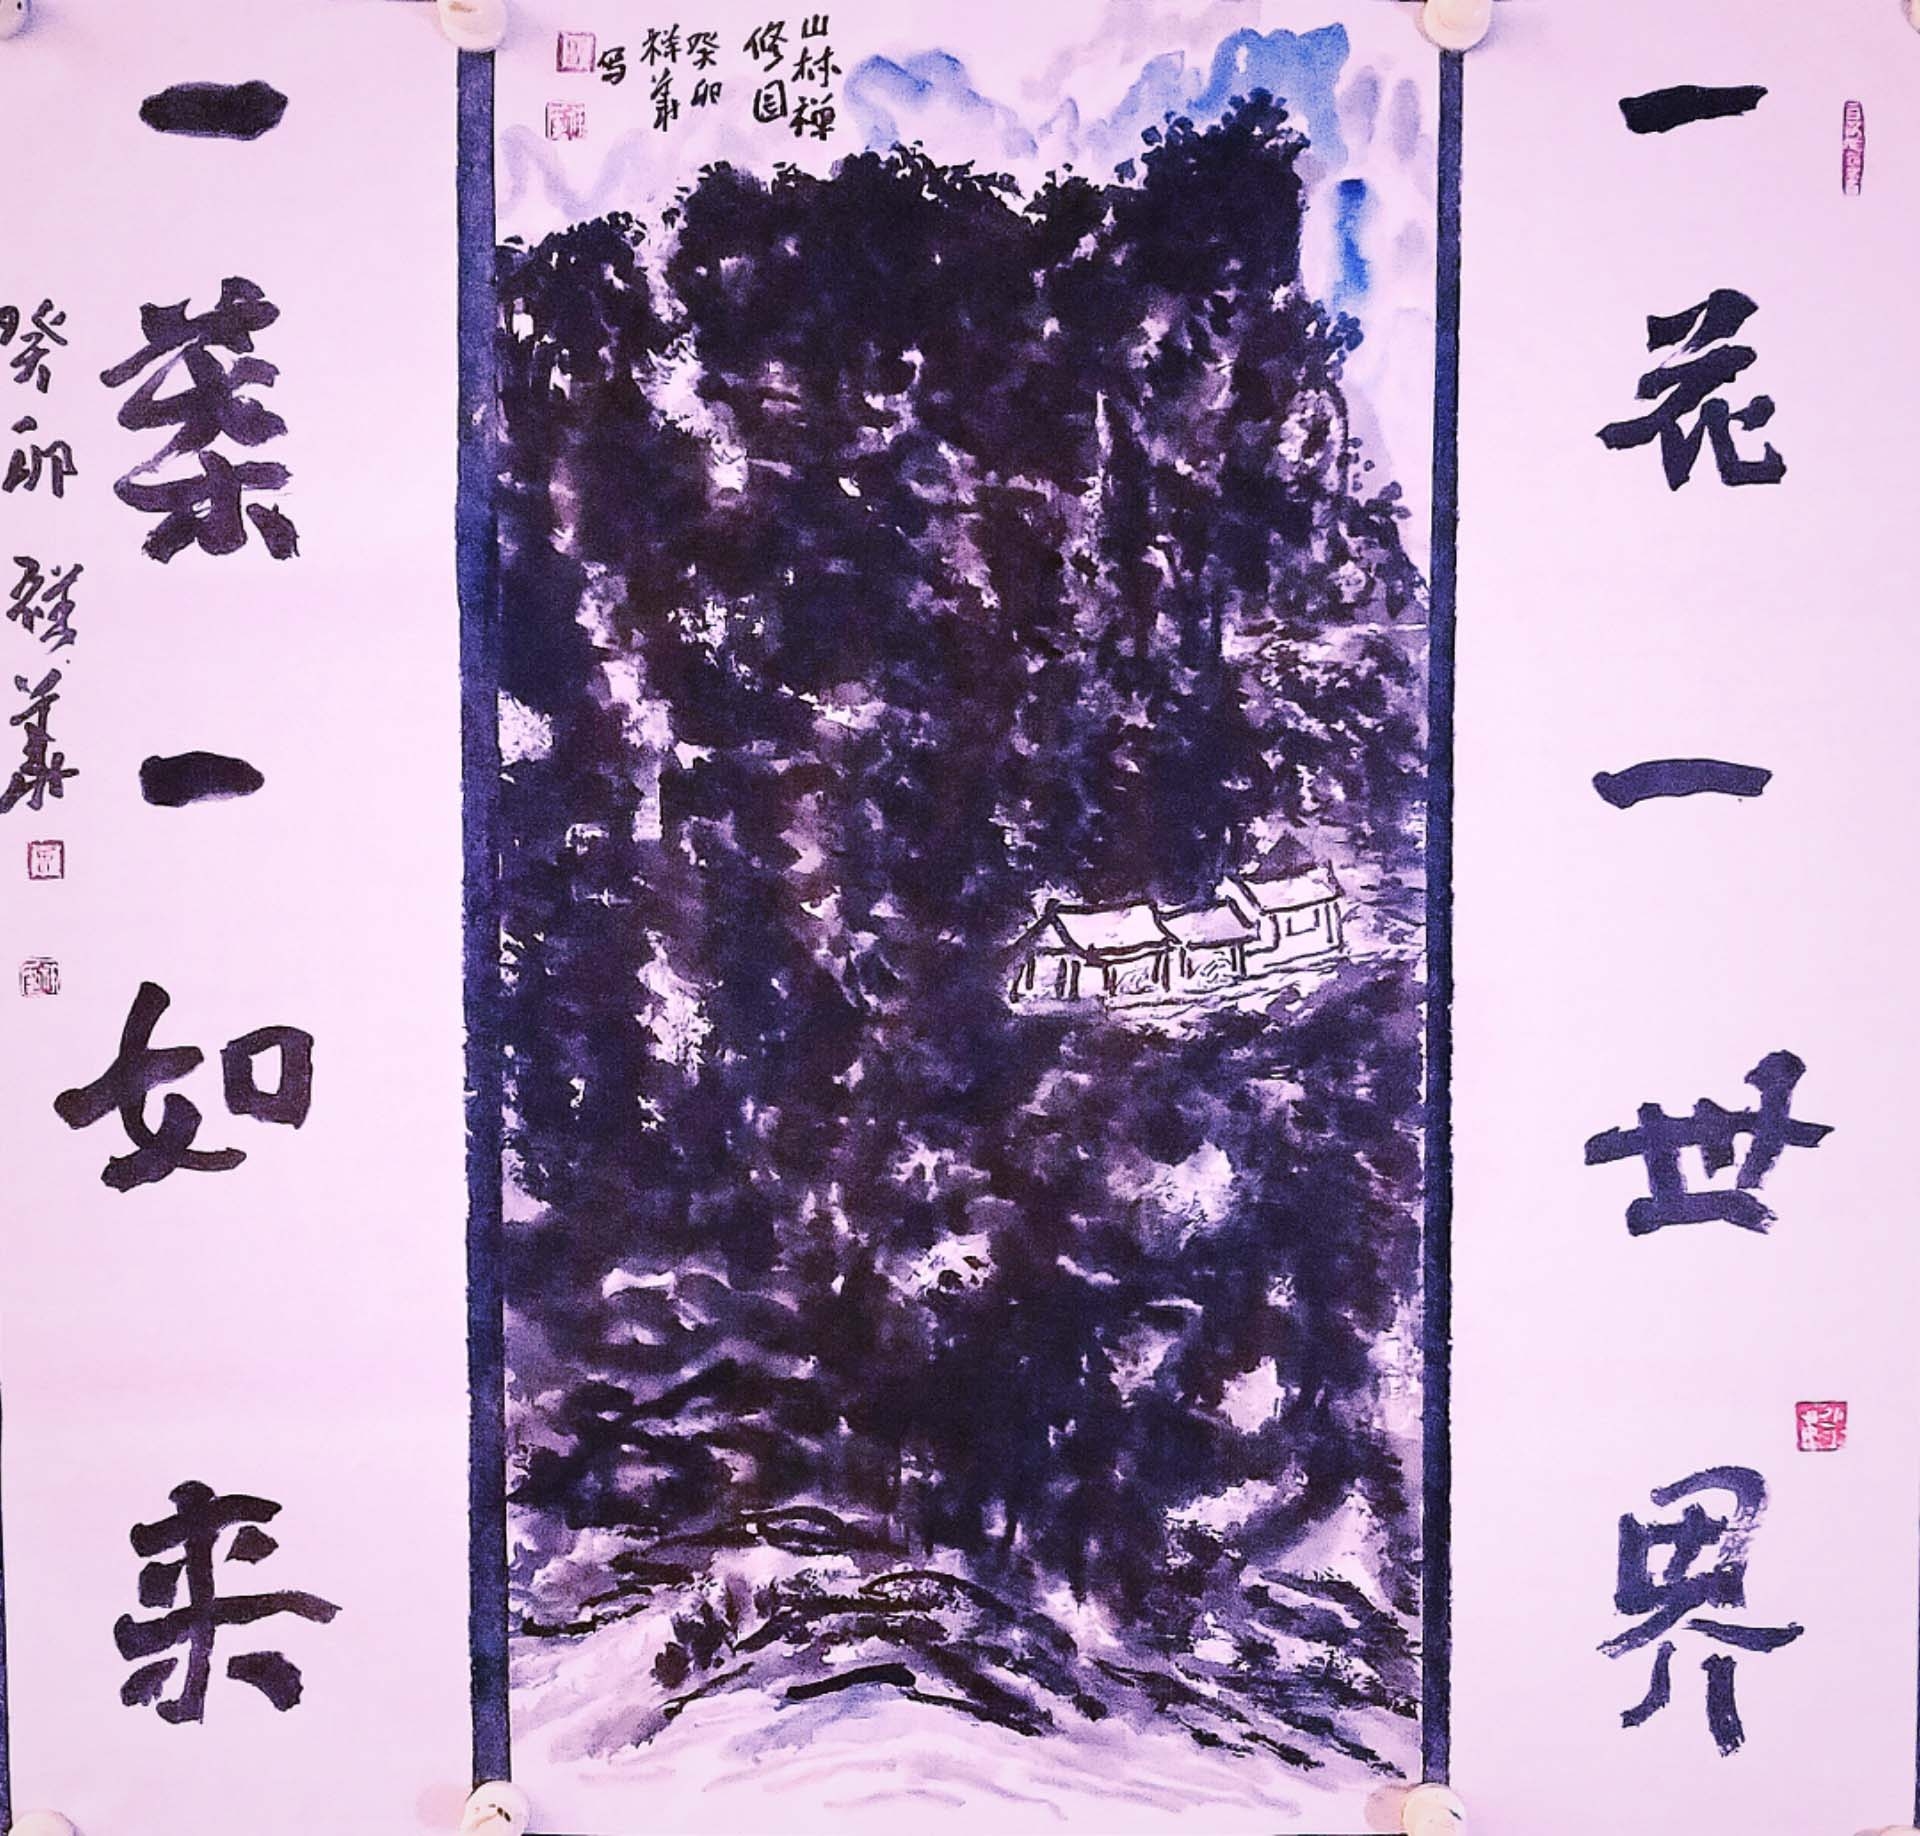 一花一世界
山林禅
修图
癸卯
祥義
写
一葉一如来
癸卯 祥義